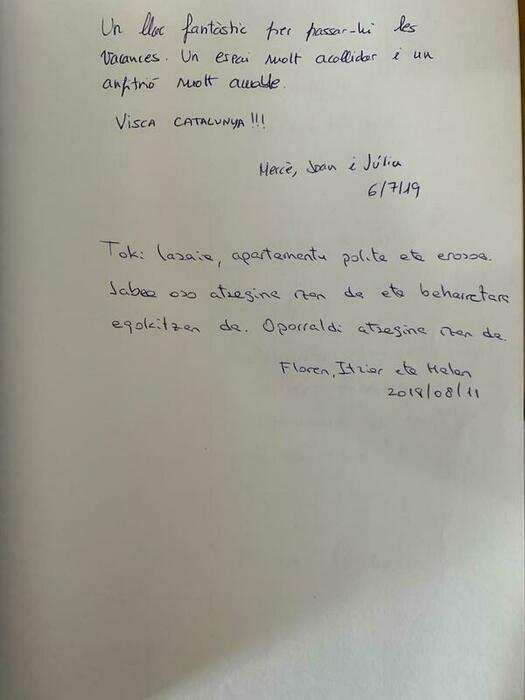 Un lloc fantàstic per passar-hi les
Vacances. Un espai molt acollidor i un
anfitrió molt amable.
VISCA CATALUNYA!!!
Mercè, Joan i Júlia
6/7/19
Toki lasaia, apartamentu polita eta erosoa.
Jabea oso atsegina izan da eta beharretara
egokitzen da. Oporraldi atsegina izan da.
Floren, Itziar eta Malen
2019/08/11